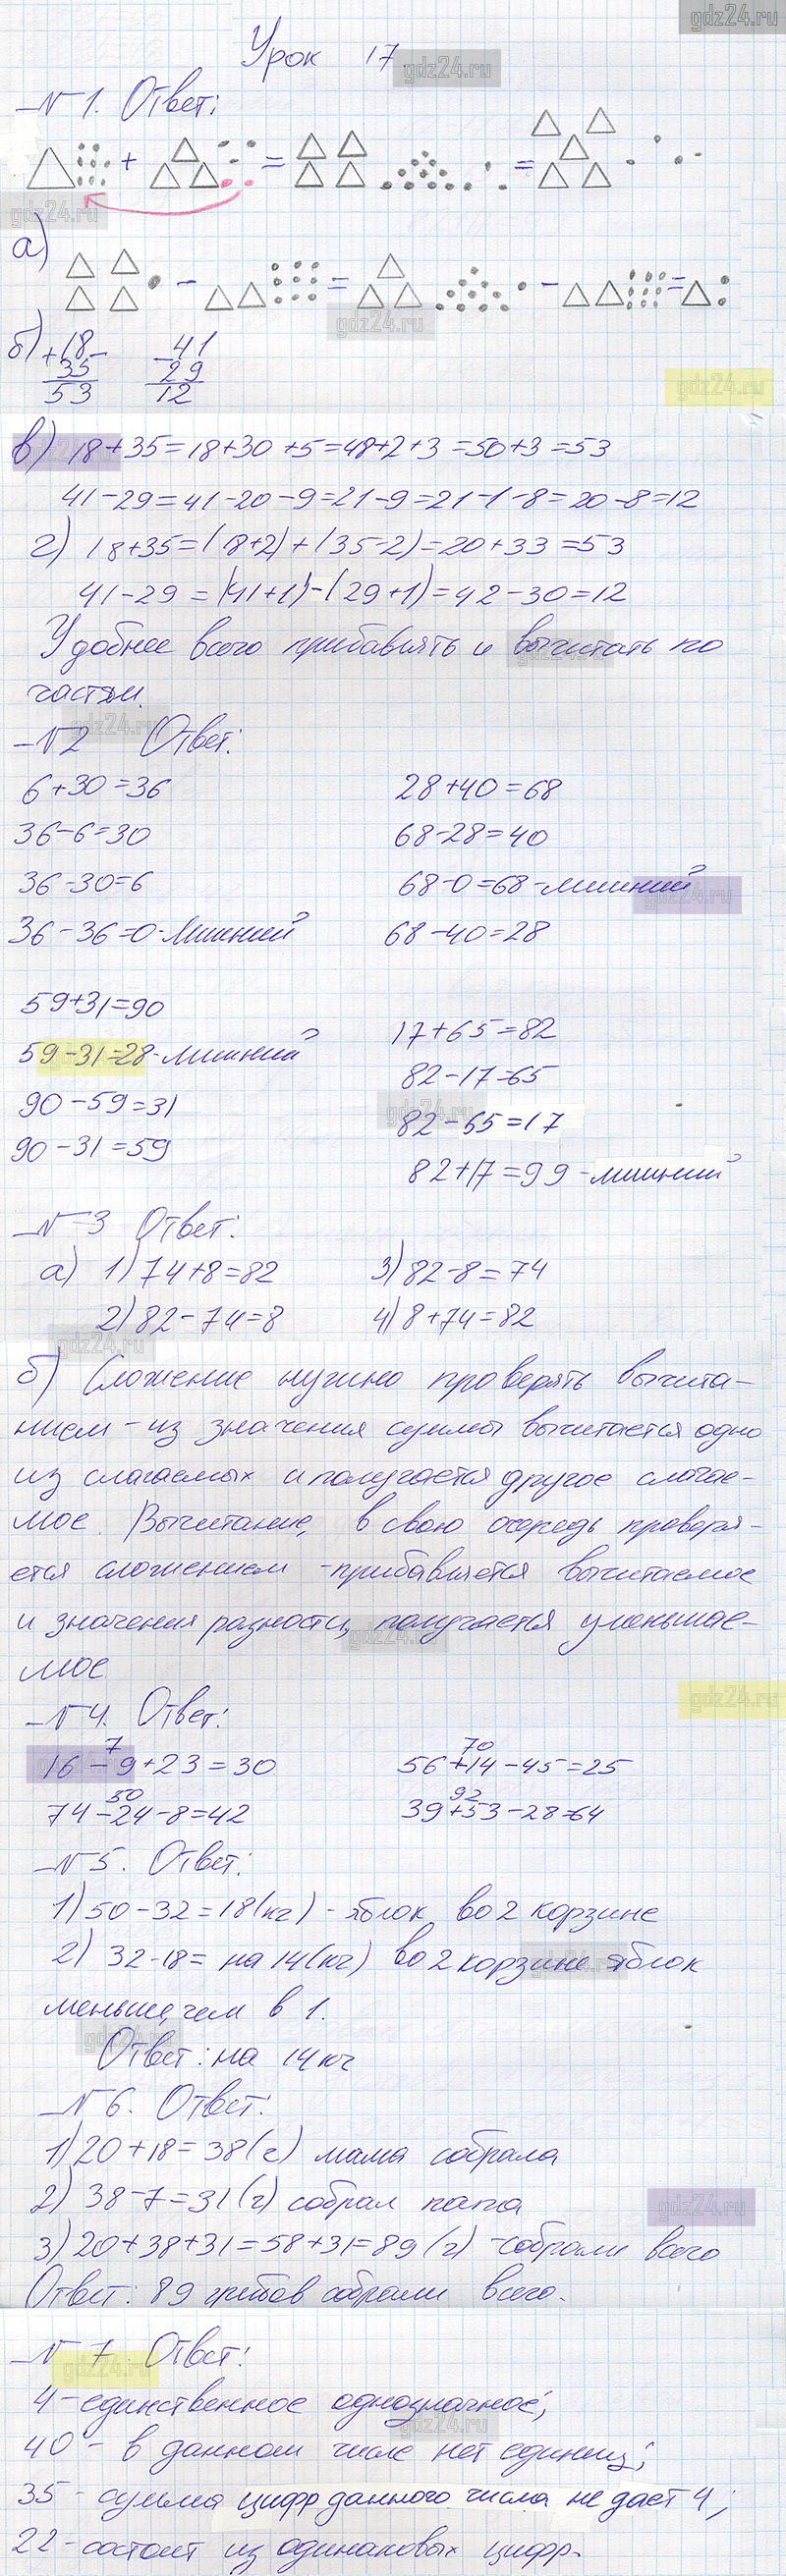 gdz24.ru
Урок 17
gdz24.ru
№1. Ответ:
+ = =
gdz24.ru
а)
- = - =
gdz24.ru
б) +18 -41
35 29
53 12
gdz24.ru
в) 18+35=18+30+5=48+2+3=50+3=53
41-29=41-20-9=21-9=21-1-8=20-8=12
г) 18+35=(18+2)+(35-2)=20+33=53
41-29=(41+1)-(29+1)=42-30=12
Удобнее всего прибавлять и вычитать по
gdz24.ru
частям.
gdz24.ru
№2 Ответ:
6+30=36 28+40=68
36-6=30 68-28=40
36-30=6 68-0=68-лишний
gdz24.ru
36-36=0-лишний 68-40=28
59+31=90
17+65=82
59-31=28-лишний
82-17=65
90-59=31
gdz24.ru
82-65=17
90-31=59
82+17=99-лишний
№3 Ответ:
а) 1) 74+8=82 3) 82-8=74
2) 82-74=8 4) 8+74=82
gdz24.ru
б) Сложение нужно проверять вычита-
нием-из значения суммы вычитается одно
из слагаемых и получается другое слагае-
мое. Вычитание, в свою очередь проверя-
ется сложением-прибавляется вычитаемое
и значения разности, получается уменьшае-
gdz24.ru
мое
gdz24.ru
№4. Ответ:
7 70
16-9+23=30 56+14-45=25
50 92
74-24-8=42 39+53-28=64
№5. Ответ:
1) 50-32=18(кг)-яблок во 2 корзине
2) 32-18= на 14(кг) во 2 корзине яблок
gdz24.ru
меньше, чем в 1.
gdz24.ru
Ответ: на 14 кг
№6. Ответ:
1) 20+18=38(г) мама собрала
2) 38-7=31(г) собрал папа
gdz24.ru
3) 20+38+31=58+31=89(г)-собрали всего
Ответ: 89 грибов собрали всего.
№7. Ответ:
gdz24.ru
4-единственное однозначное;
gdz24.ru
40-в данном числе нет единиц;
35-сумма цифр данного числа не дает 4;
22-состоит из одинаковых цифр.